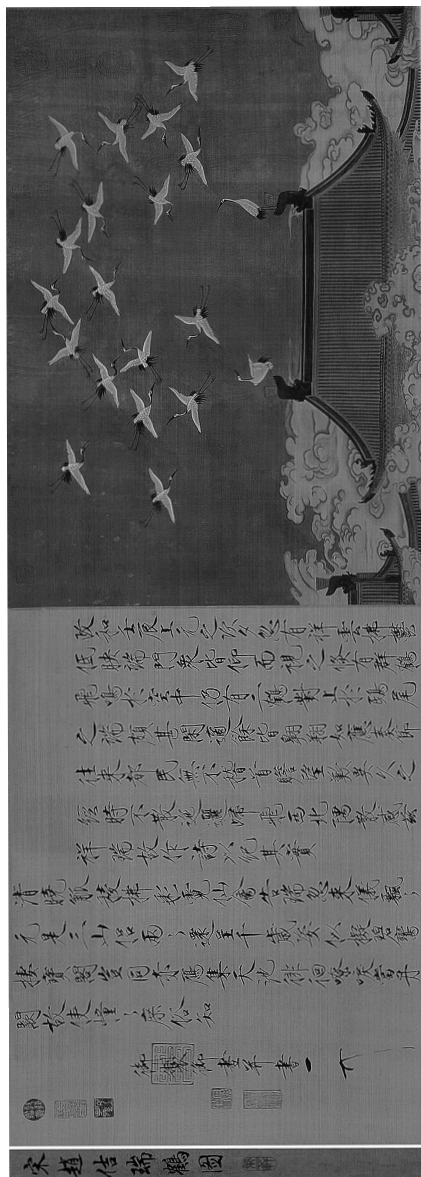 政和壬辰上元之次夕忽有祥雲拂鬱
低映端門眾皆仰而視之倏有群鶴
飛鳴於空中仍有二鶴對止於鴟尾
之端頗甚閑適餘皆翱翔如應奏節
往來都民無不稽首瞻望歎異久之
經時不散迤邐歸飛西北隅散感茲
祥瑞故作詩以紀其實
清曉觚稜拂彩霓仙禽告瑞忽來儀飄々
元是三山侶兩々還呈千歲姿似擬碧鸞
棲寶閣豈同赤鴈集天池徘徊嘹唳當丹
闕故使憧々庶俗知
御製御畫并書
宋趙佶瑞鶴圖